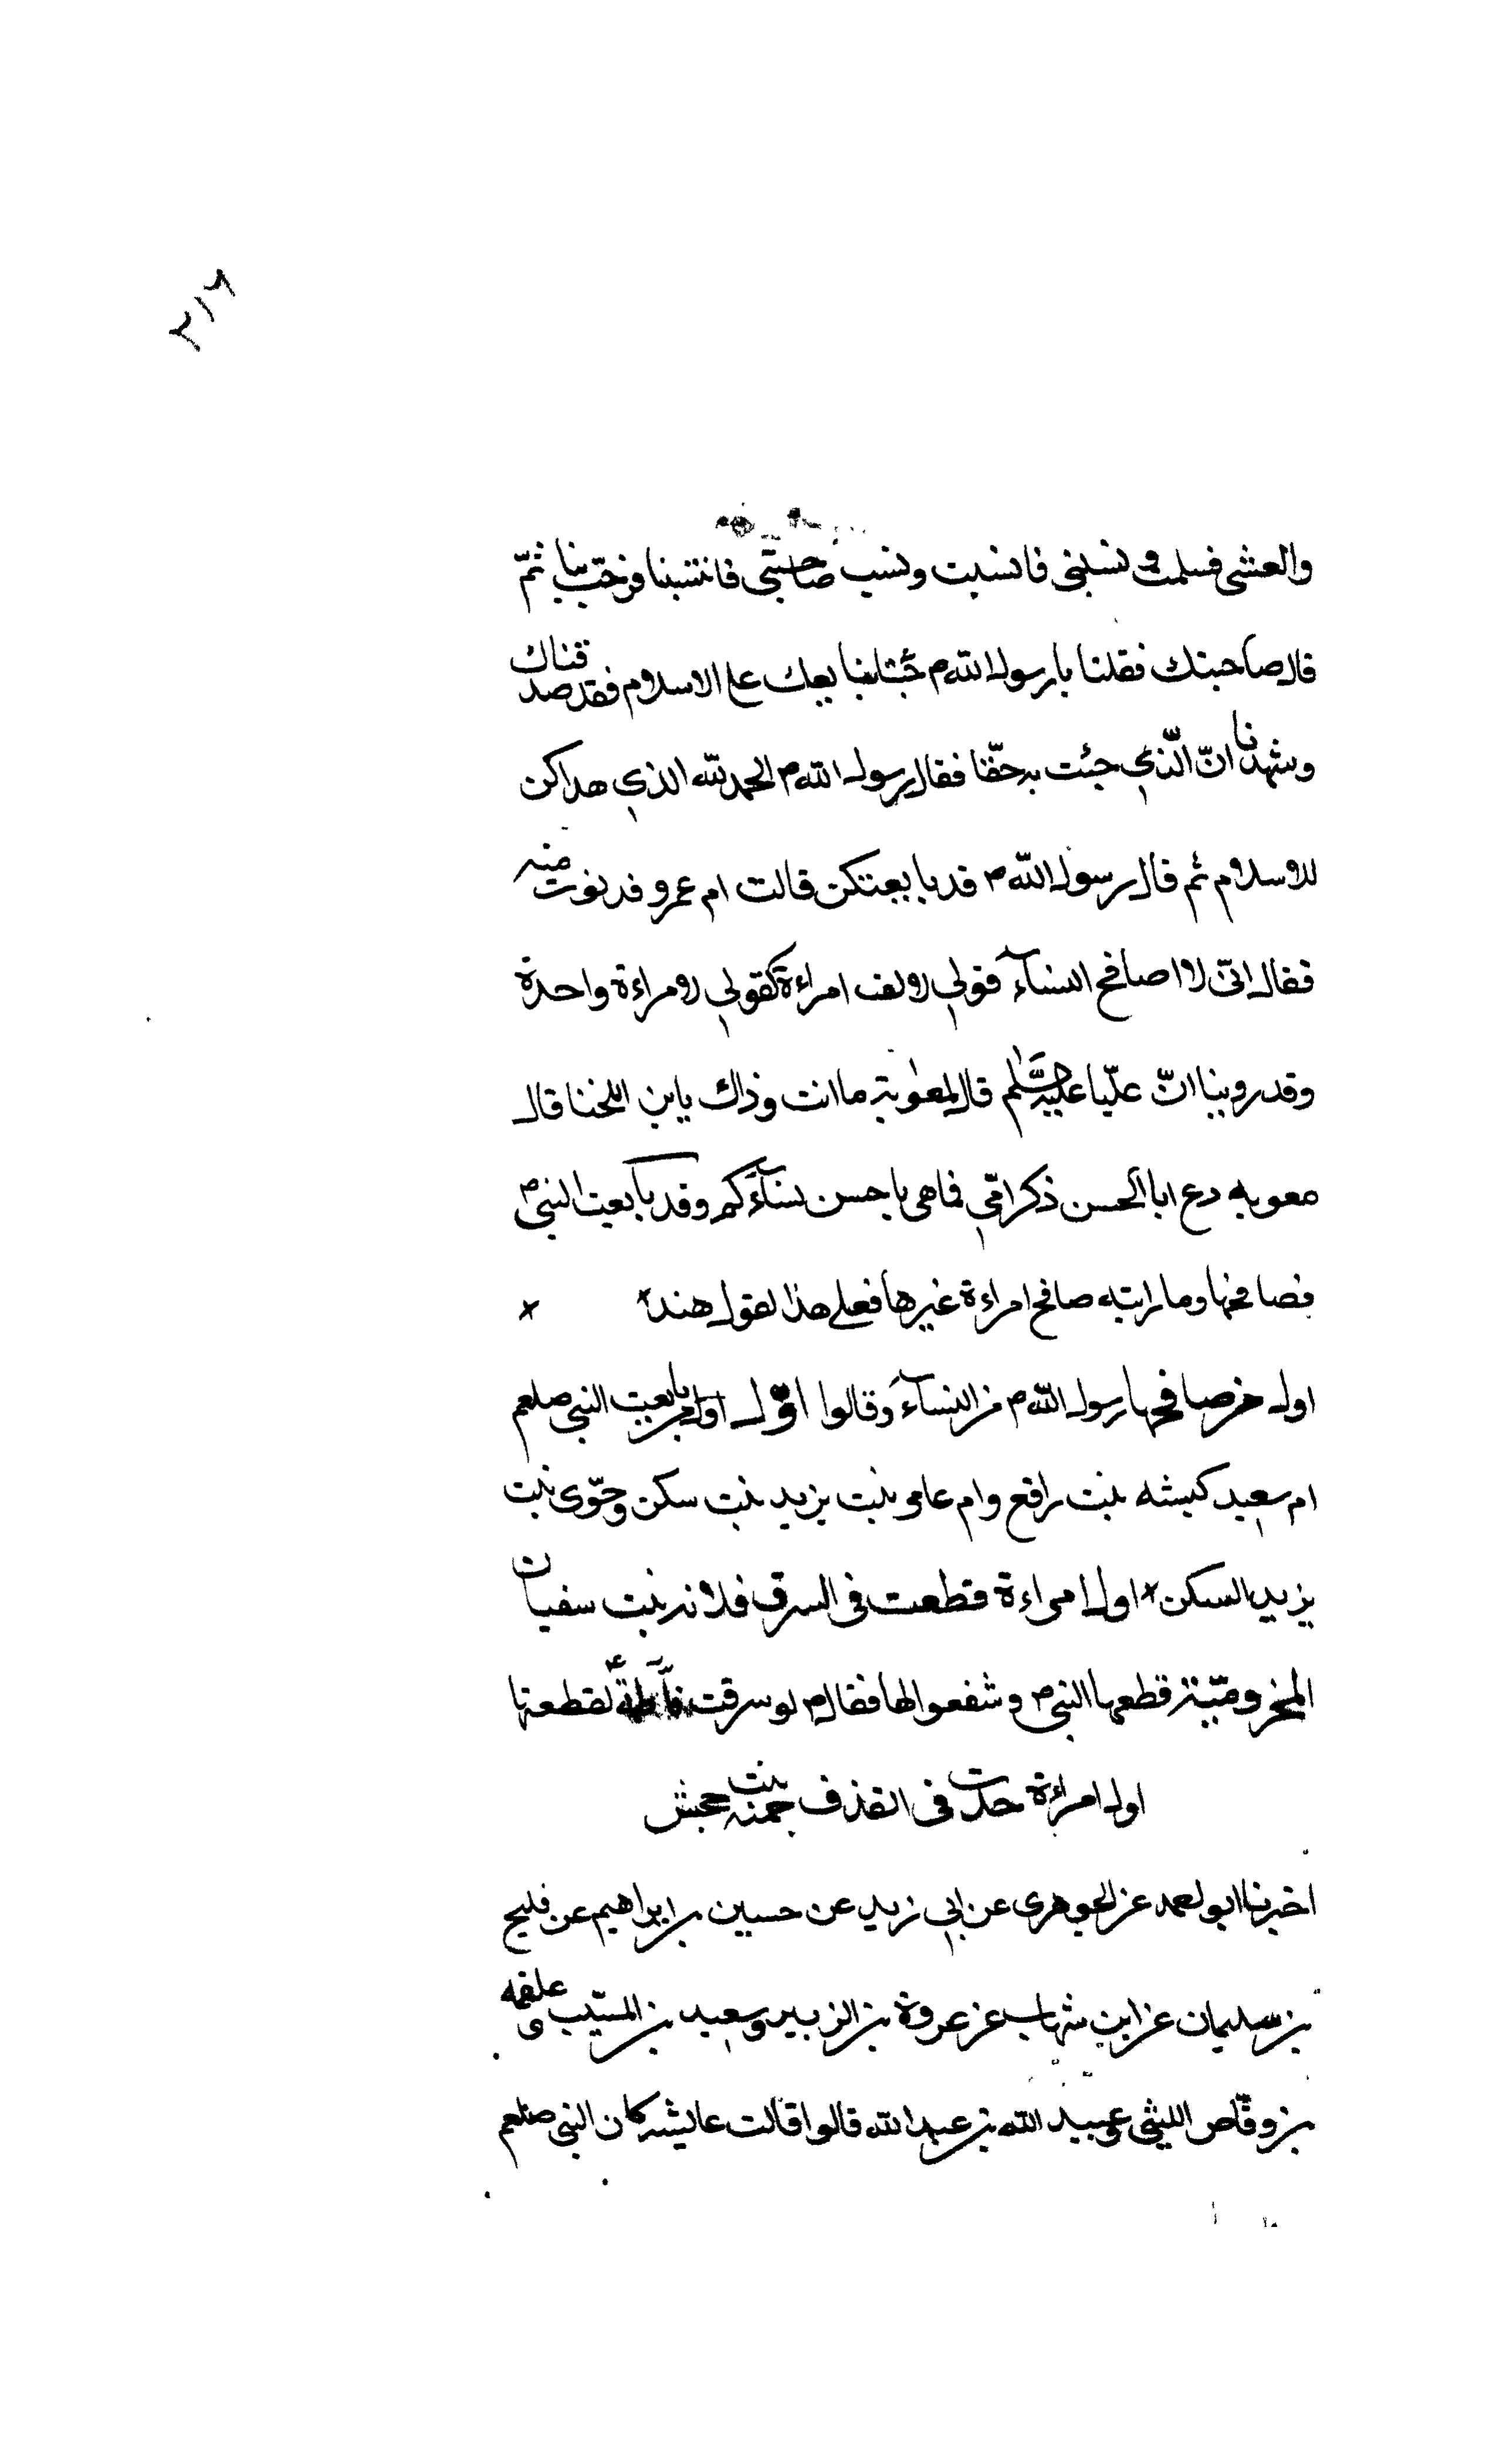 ٢١٦
والعشى فسلمت ونسبنى فانتسبت ونسب صاحبتى فانتسبنا فرحّب بنا ثمّ
قال حاجتك فقلنا يا رسول اللهم جئنا نبايعك على الاسلام فقد صدقناك
وشهدنا انّ الّذي جئت به حقّا فقال رسول اللهم الحمد لله الذي هداكن
للاسلام ثم قال رسول الله م قد بايعتكن قالت ام عمرو فدنوت منه
فقال انّى لا اصافح النسآء قولي لالف امراءة كقولي لامراءة واحدة
وقد روينا انّ عليّا عليه السّلم قال لمعوية ما انت وذاك يابن اللخنا قال
معويه دع ابا الحسن ذكر امّي فما هي باخس نسآءكم وقد بايعت النبي م
فصافحها وما رايته صافح امراءة غيرها فعلى هذا لقول هندا
اول من صافحها رسول الله م من النسآء وقالوا اوّل بايعت النبي صلعم
ام سعيد كبشه بنت رافع وام عامر بنت يزيد بنت سكن وحوّى بنت
يزيد السكن اول امراءة قطعت فى السرق فلانه بنت سفيان
المخزوميّة قطعها النبي م وشفعوا لها فقال م لو سرقت فاطمة لقطعتها
اول امراءة حدت فى القذف حمنه بنت جحش
اخبرنا ابو احمد عن الجوهرى عن ابي زيد عن حسين بن ابراهيم عن فليح
بن سليمان عن ابن شهاب عن عروة بن الزبير وسعيد بن المسيّب وعلقمه
بن وقّاص الليثى وعبيد الله بن عبد الله قالوا قالت عايشه كان النبي صلعم